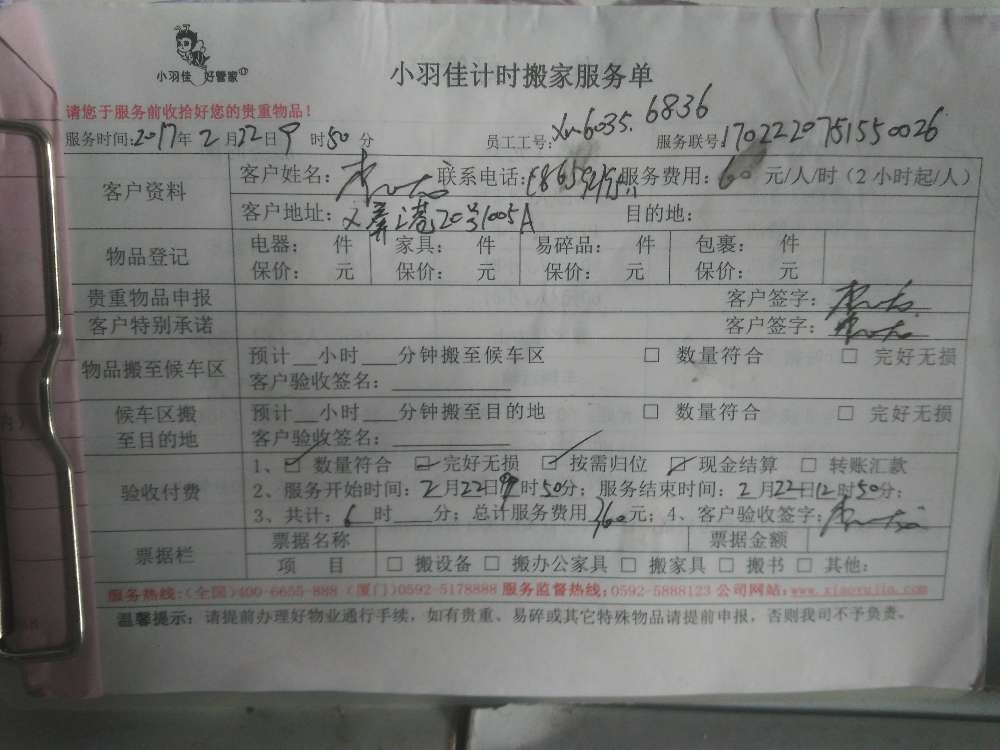 小羽佳 好管家
小羽佳计时搬家服务单
请您于服务前收拾好您的贵重物品！
服务时间:2017年2月22日9时50分 员工工号:xm6035.6836 服务联号:170222075155 0026
客户资料 客户姓名： 联系电话: 服务费用：60元/人/时（2小时起/人）
客户地址： 20号1005A 目的地：
物品登记 电器： 件 家具： 件 易碎品： 件 包裹： 件
保价： 元 保价： 元 保价： 元 保价： 元
贵重物品申报 客户签字：
客户特别承诺 客户签字：
物品搬至候车区 预计__小时___分钟搬至候车区 □ 数量符合 □ 完好无损
客户验收签名：
候车区搬至目的地 预计__小时___分钟搬至目的地 □ 数量符合 □ 完好无损
客户验收签名：
验收付费 1、☑ 数量符合 ☑ 完好无损 ☑ 按需归位 ☑ 现金结算 □ 转账汇款
2、服务开始时间：2月22日9时50分；服务结束时间：2月22日12时50分；
3、共计：6时___分；总计服务费用360元；4、客户验收签字：
票据栏 票据名称 票据金额
项 目 □ 搬设备 □ 搬办公家具 □ 搬家具 □ 搬书 □ 其他：
服务热线:(全国)400-6655-888 (厦门)0592-5178888 服务监督热线:0592-5888123 公司网站:www.xiaoyujia.com
温馨提示：请提前办理好物业通行手续，如有贵重、易碎或其它特殊物品请提前申报，否则我司不予负责。